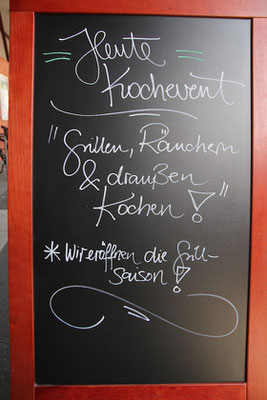 = Heute =
Kochevent
"Grillen, Räuchern
& draußen
Kochen!"
* Wir eröffnen die Grill-
saison!